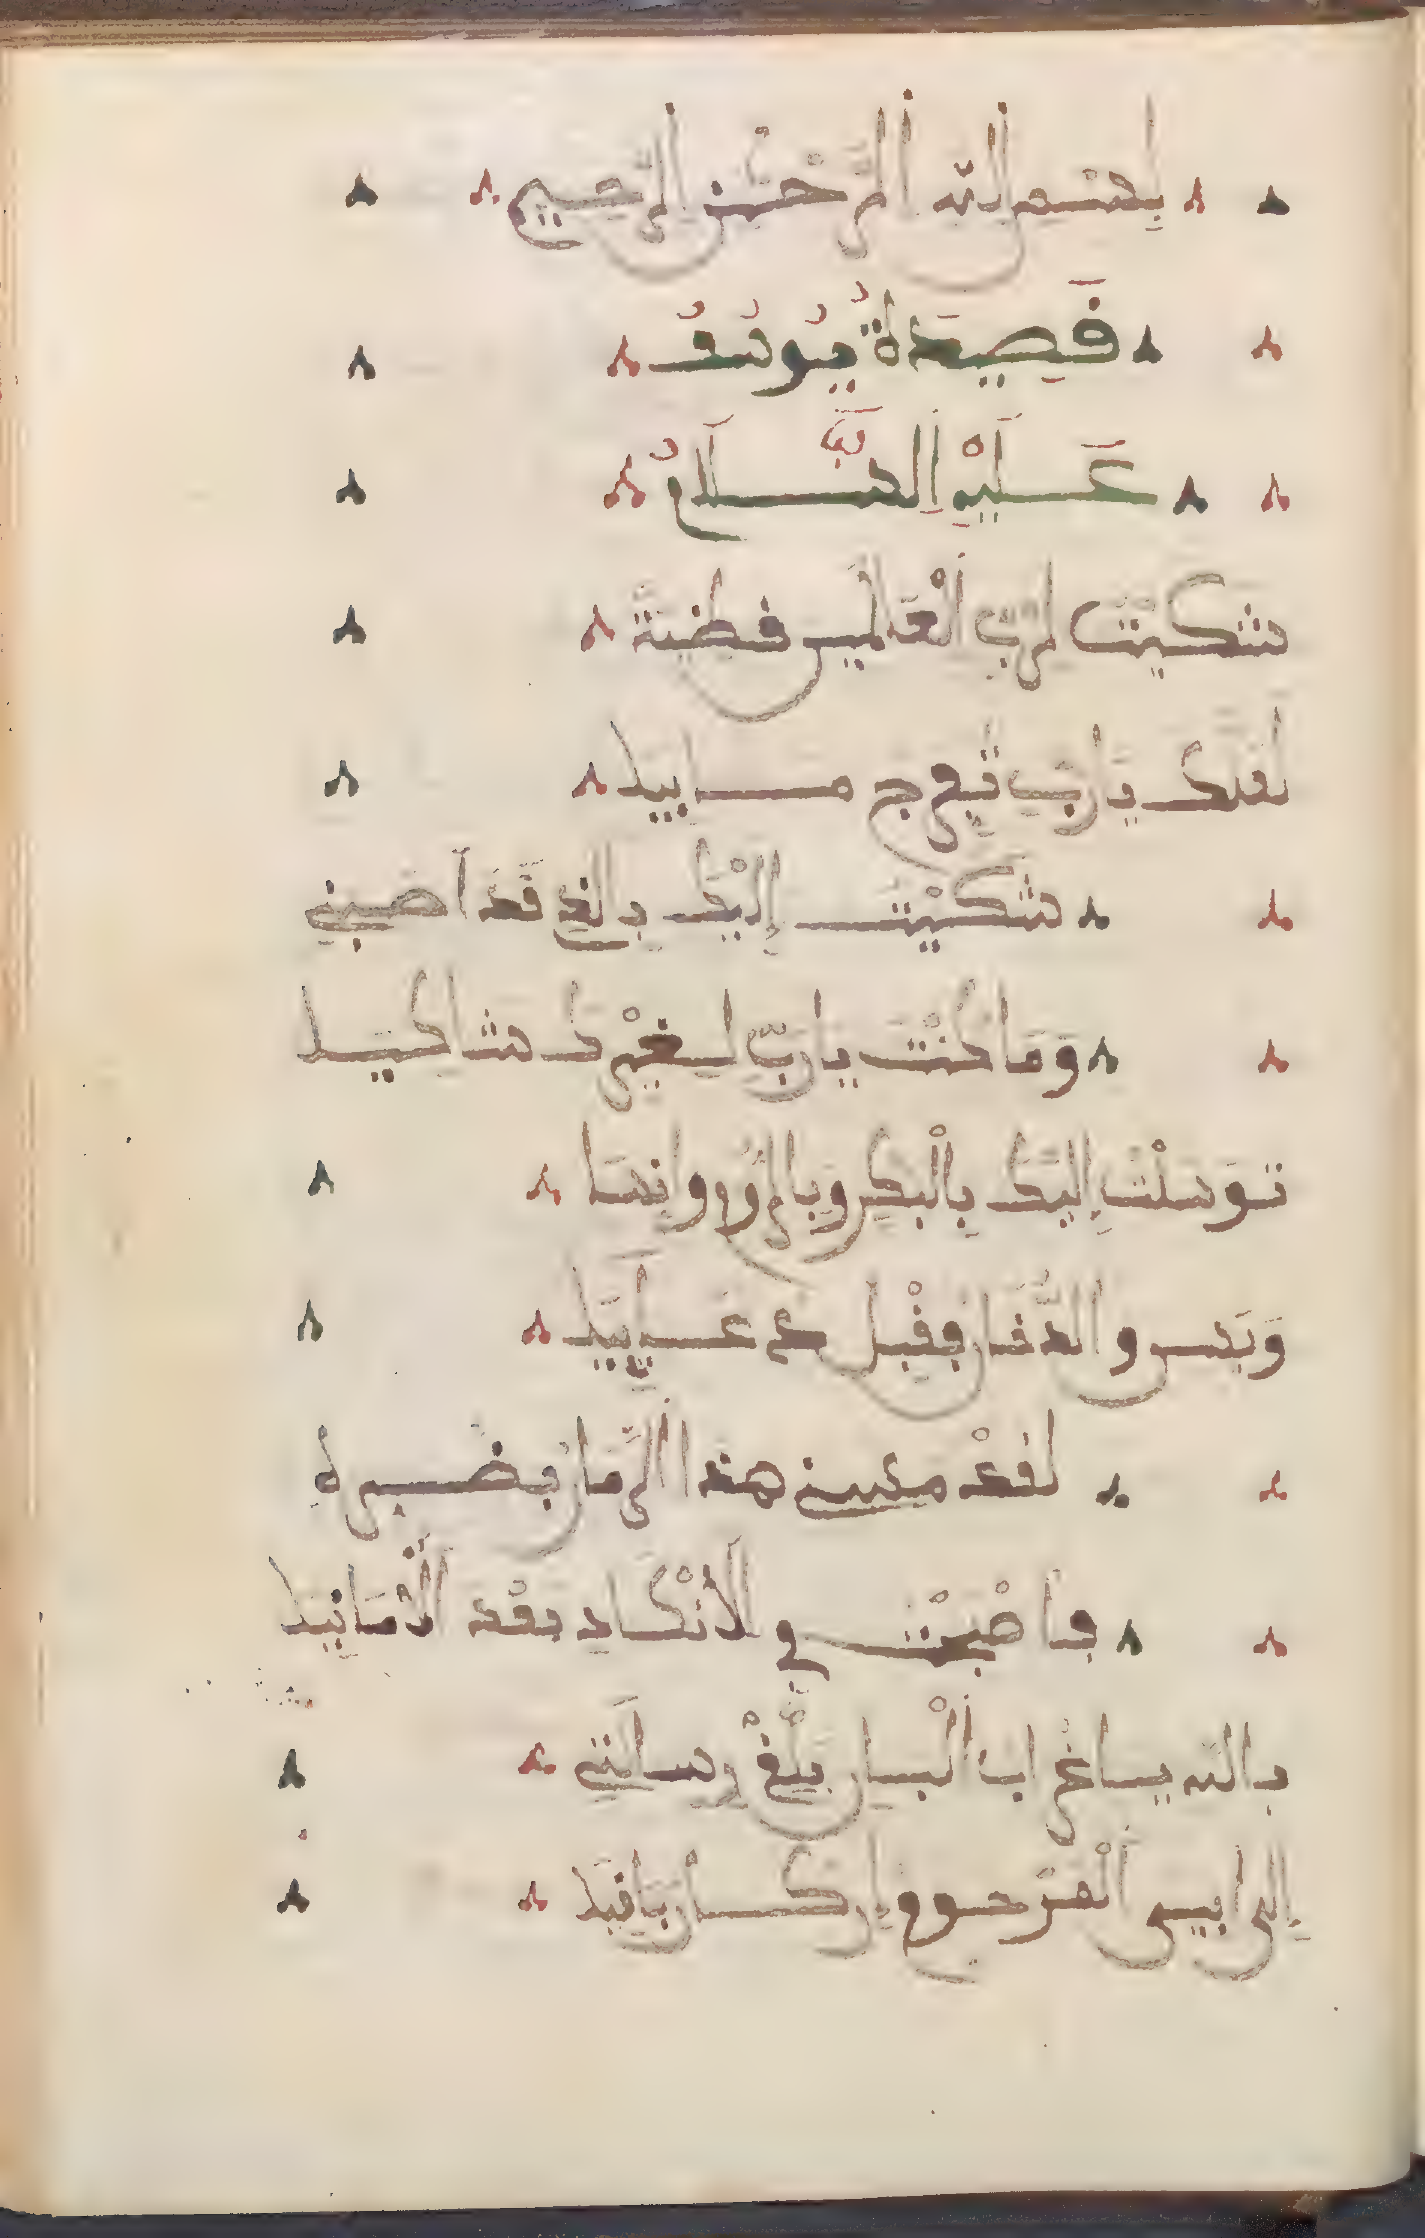 بِسْمِ اللّٰهِ الرَّحْمٰنِ الرَّحِيمِ
قَصِيدَةُ يُوسُفُ
عَلَيْهِ السَّلَامُ
شكيْتُ لربّ الْعَالمين قضيّة
لعلك يارب تفرج مابيا
شكيْتُ إليْكَ بالذي قد اصبني
وَمَا كُنْتُ يا ربّ لغيْرك شاكيا
توسلْتُ إليك بِالْبكر وبالروم وانسا
وَيٰس والدخان فاقْبل دعايا
لقدْ مسني هذا الزمان بضره
فاصْبحْتُ في الانْكاد بعْد الْأمانيا
بالله يا غراب الْبين بلّغْ رسالتي
إلى ابي الْمرْحوم إن كان باقيا